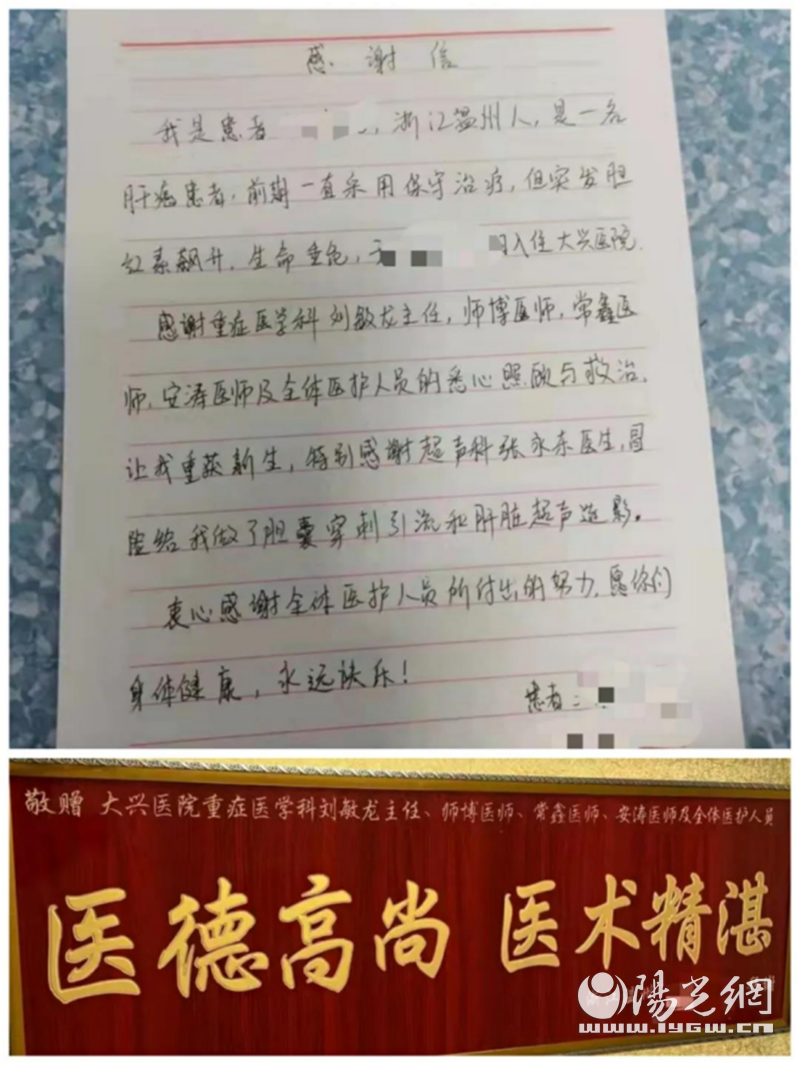 感谢信
我是患者，浙江温州人，是一名
肝病患者，前期一直采用保守治疗，但突发胆
红素飙升，生命垂危，于日入住大兴医院.
感谢重症医学科刘敏龙主任，师博医师，常鑫医
师，安涛医师及全体医护人员的悉心照顾与救治，
让我重获新生，特别感谢超声科张永东医生，冒
险给我做了胆囊穿刺引流和肝脏超声造影。
衷心感谢全体医护人员所付出的努力，愿你们
身体健康，永远快乐！
患者：
敬赠 大兴医院重症医学科刘敏龙主任、师博医师、常鑫医师、安涛医师及全体医护人员
医德高尚 医术精湛
陽光網
www.iygw.cn